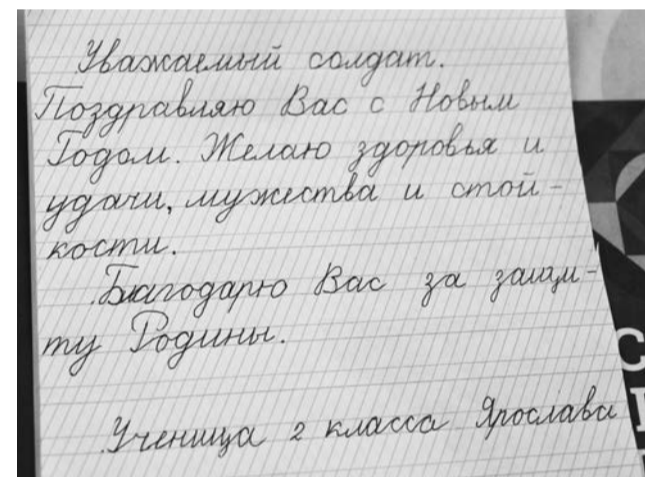 Уважаемый солдат.
Поздравляю Вас с Новым
Годом. Желаю здоровья и
удачи, мужества и стой-
кости.
Благодарю Вас за защи-
ту Родины.
Ученица 2 класса Ярослава